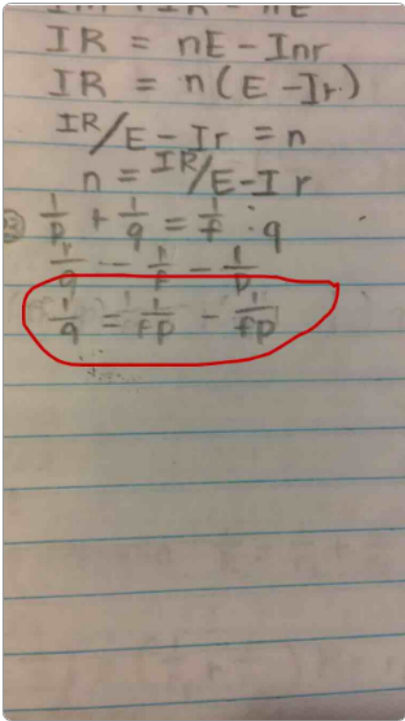 IR = nE - Inr
IR = n(E - Ir)
IR/E - Ir = n
n = IR/E-I r
1/p + 1/q = 1/f : q
1/q - 1/f - 1/p
1/q = 1/fp - 1/fp